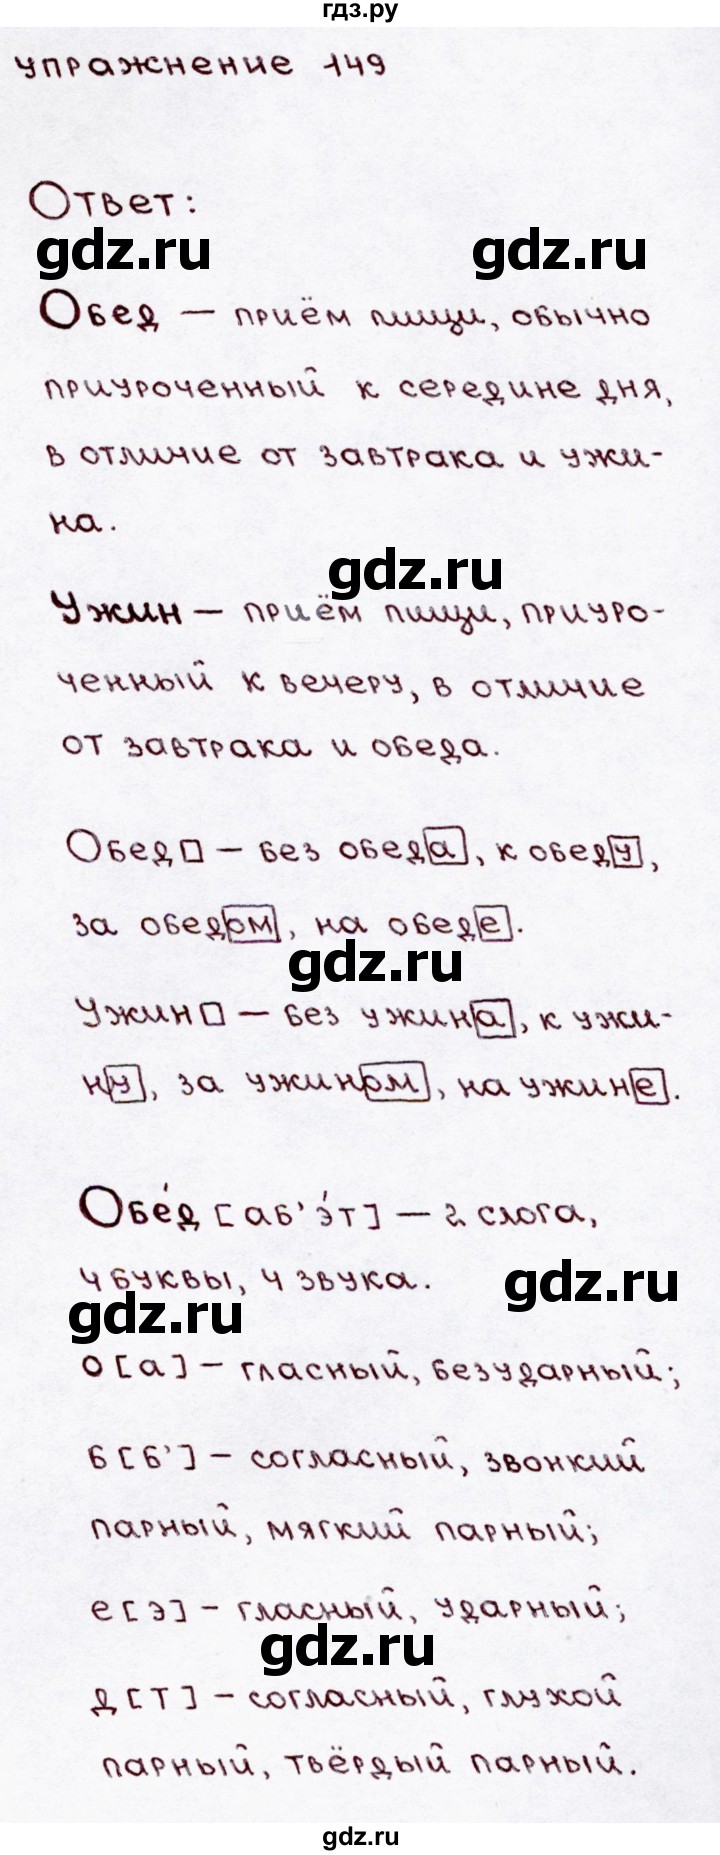 гдз.ру
упражнение 149
Ответ:
gdz.ru gdz.ru
Обед — приём пищи, обычно
приуроченный к середине дня,
в отличие от завтрака и ужи-
на.
gdz.ru
Ужин — приём пищи, приуро-
ченный к вечеру, в отличие
от завтрака и обеда.
Обед□ — без обеда, к обеду,
за обедом, на обеде.
gdz.ru
Ужин□ — без ужина, к ужи-
ну, за ужином, на ужине.
Обе́д [аб'э́т] — 2 слога,
4 буквы, 4 звука.
gdz.ru
gdz.ru
о [а] — гласный, безударный;
б [б'] — согласный, звонкий
парный, мягкий парный;
е [э] — гласный, ударный;
gdz.ru
д [т] — согласный, глухой
парный, твёрдый парный.
gdz.ru